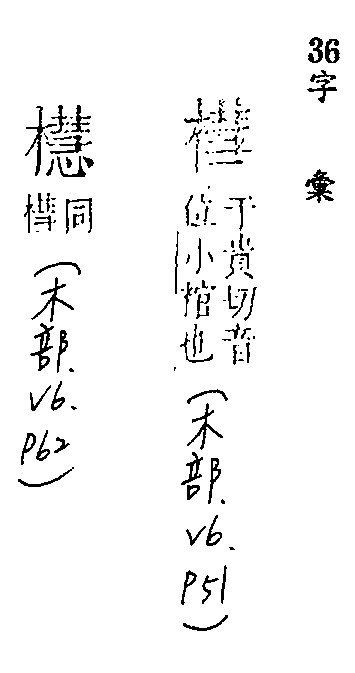 36字彙
槥
于貴切音
位小棺也
(木部.V6.P51)
櫘
同
槥
(木部.V6.P62)